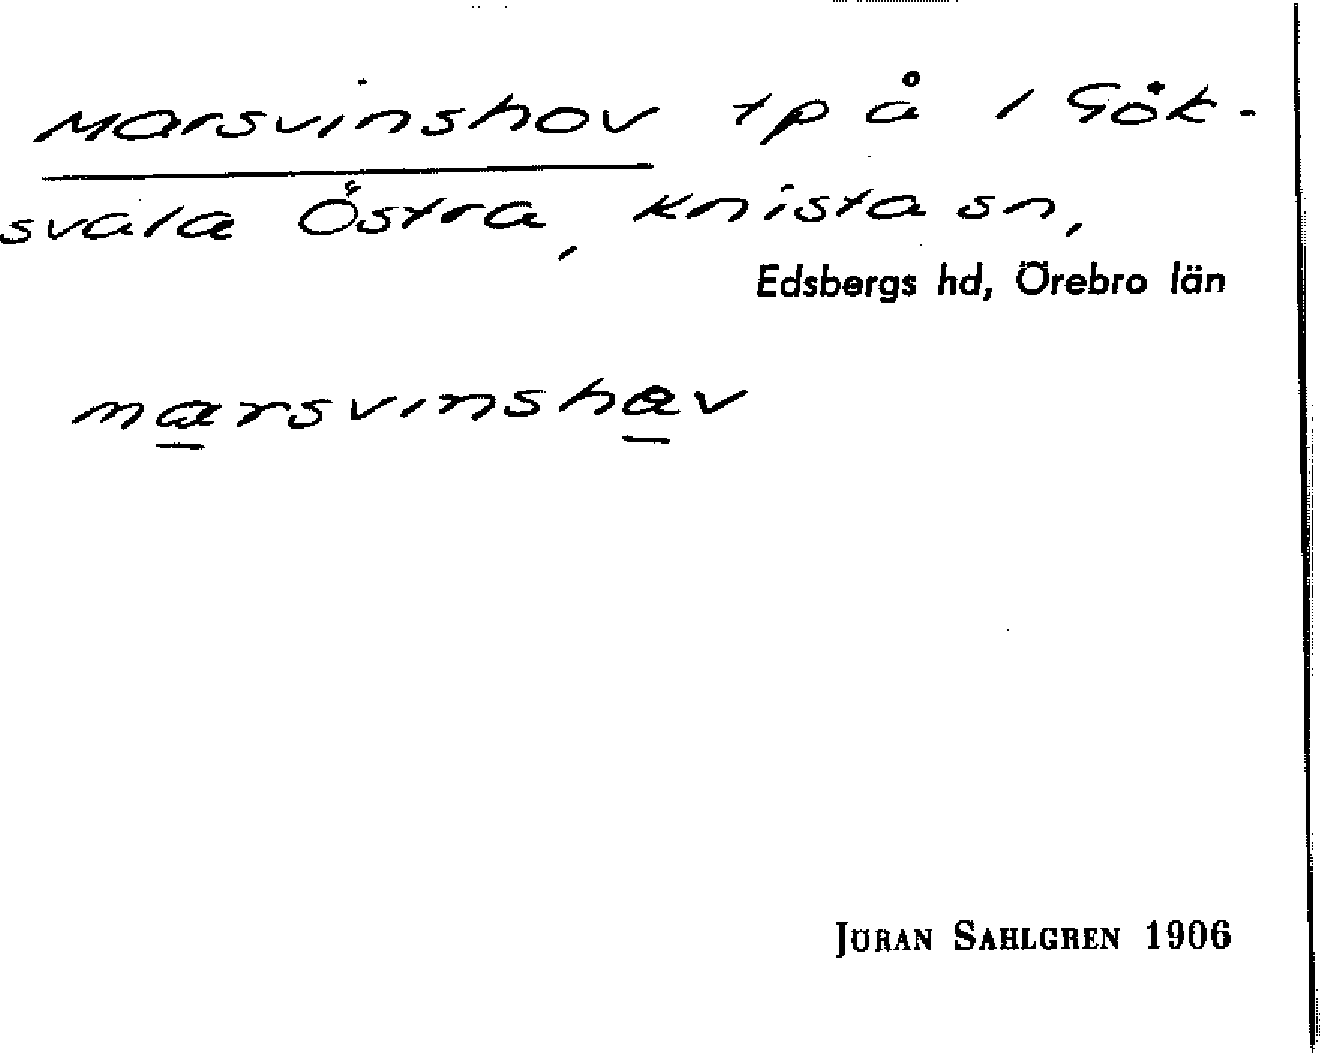 Marsvinshov tp å 1 Gök-
svala Östra, Knista sn,
Edsbergs hd, Örebro län
marsvinshav
JÖRAN SAHLGREN 1906